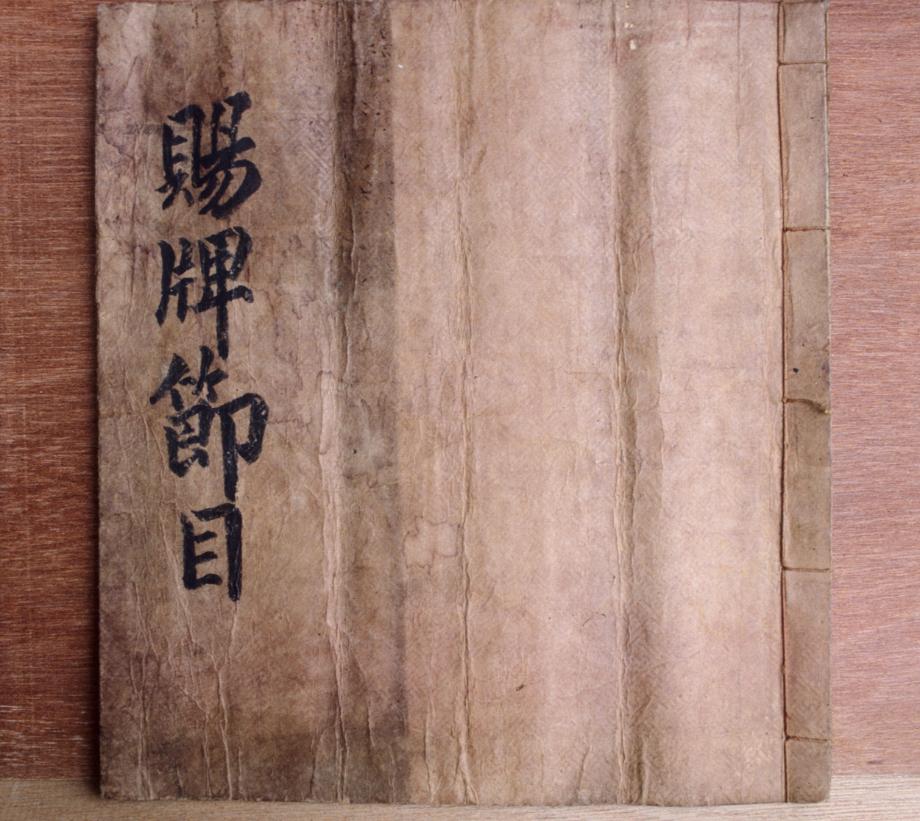 賜牌節目